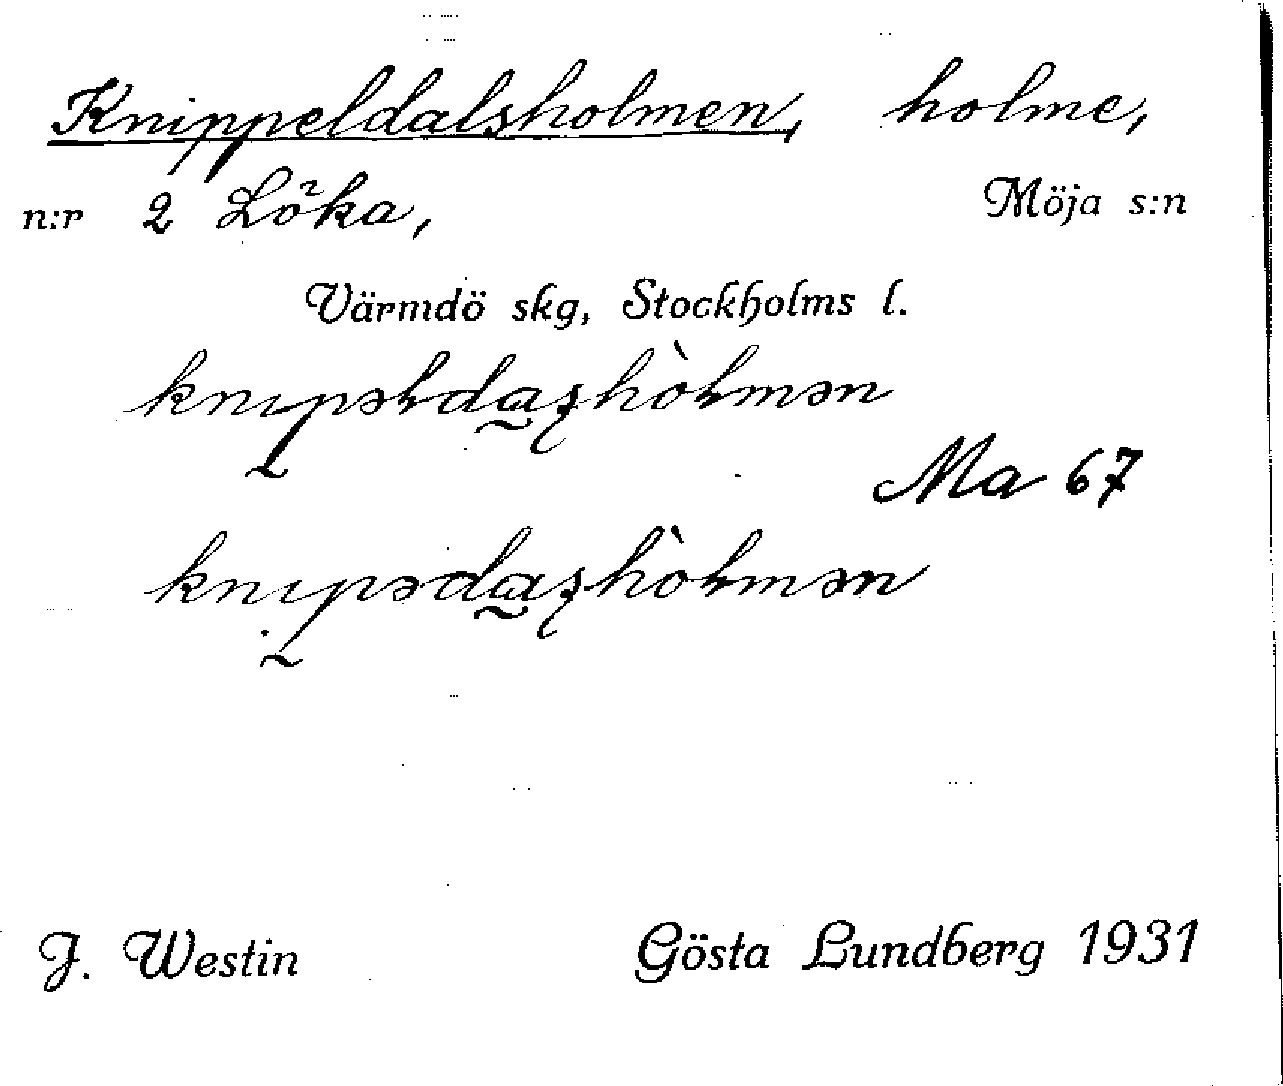 Knippeldalsholmen, holme,
n:r 2 Löka, Möja s:n
Värmdö skg, Stockholms l.
knıpəldaʂhòlmən
Ma 67
knıpədaʂhòlmən
J. Westin Gösta Lundberg 1931